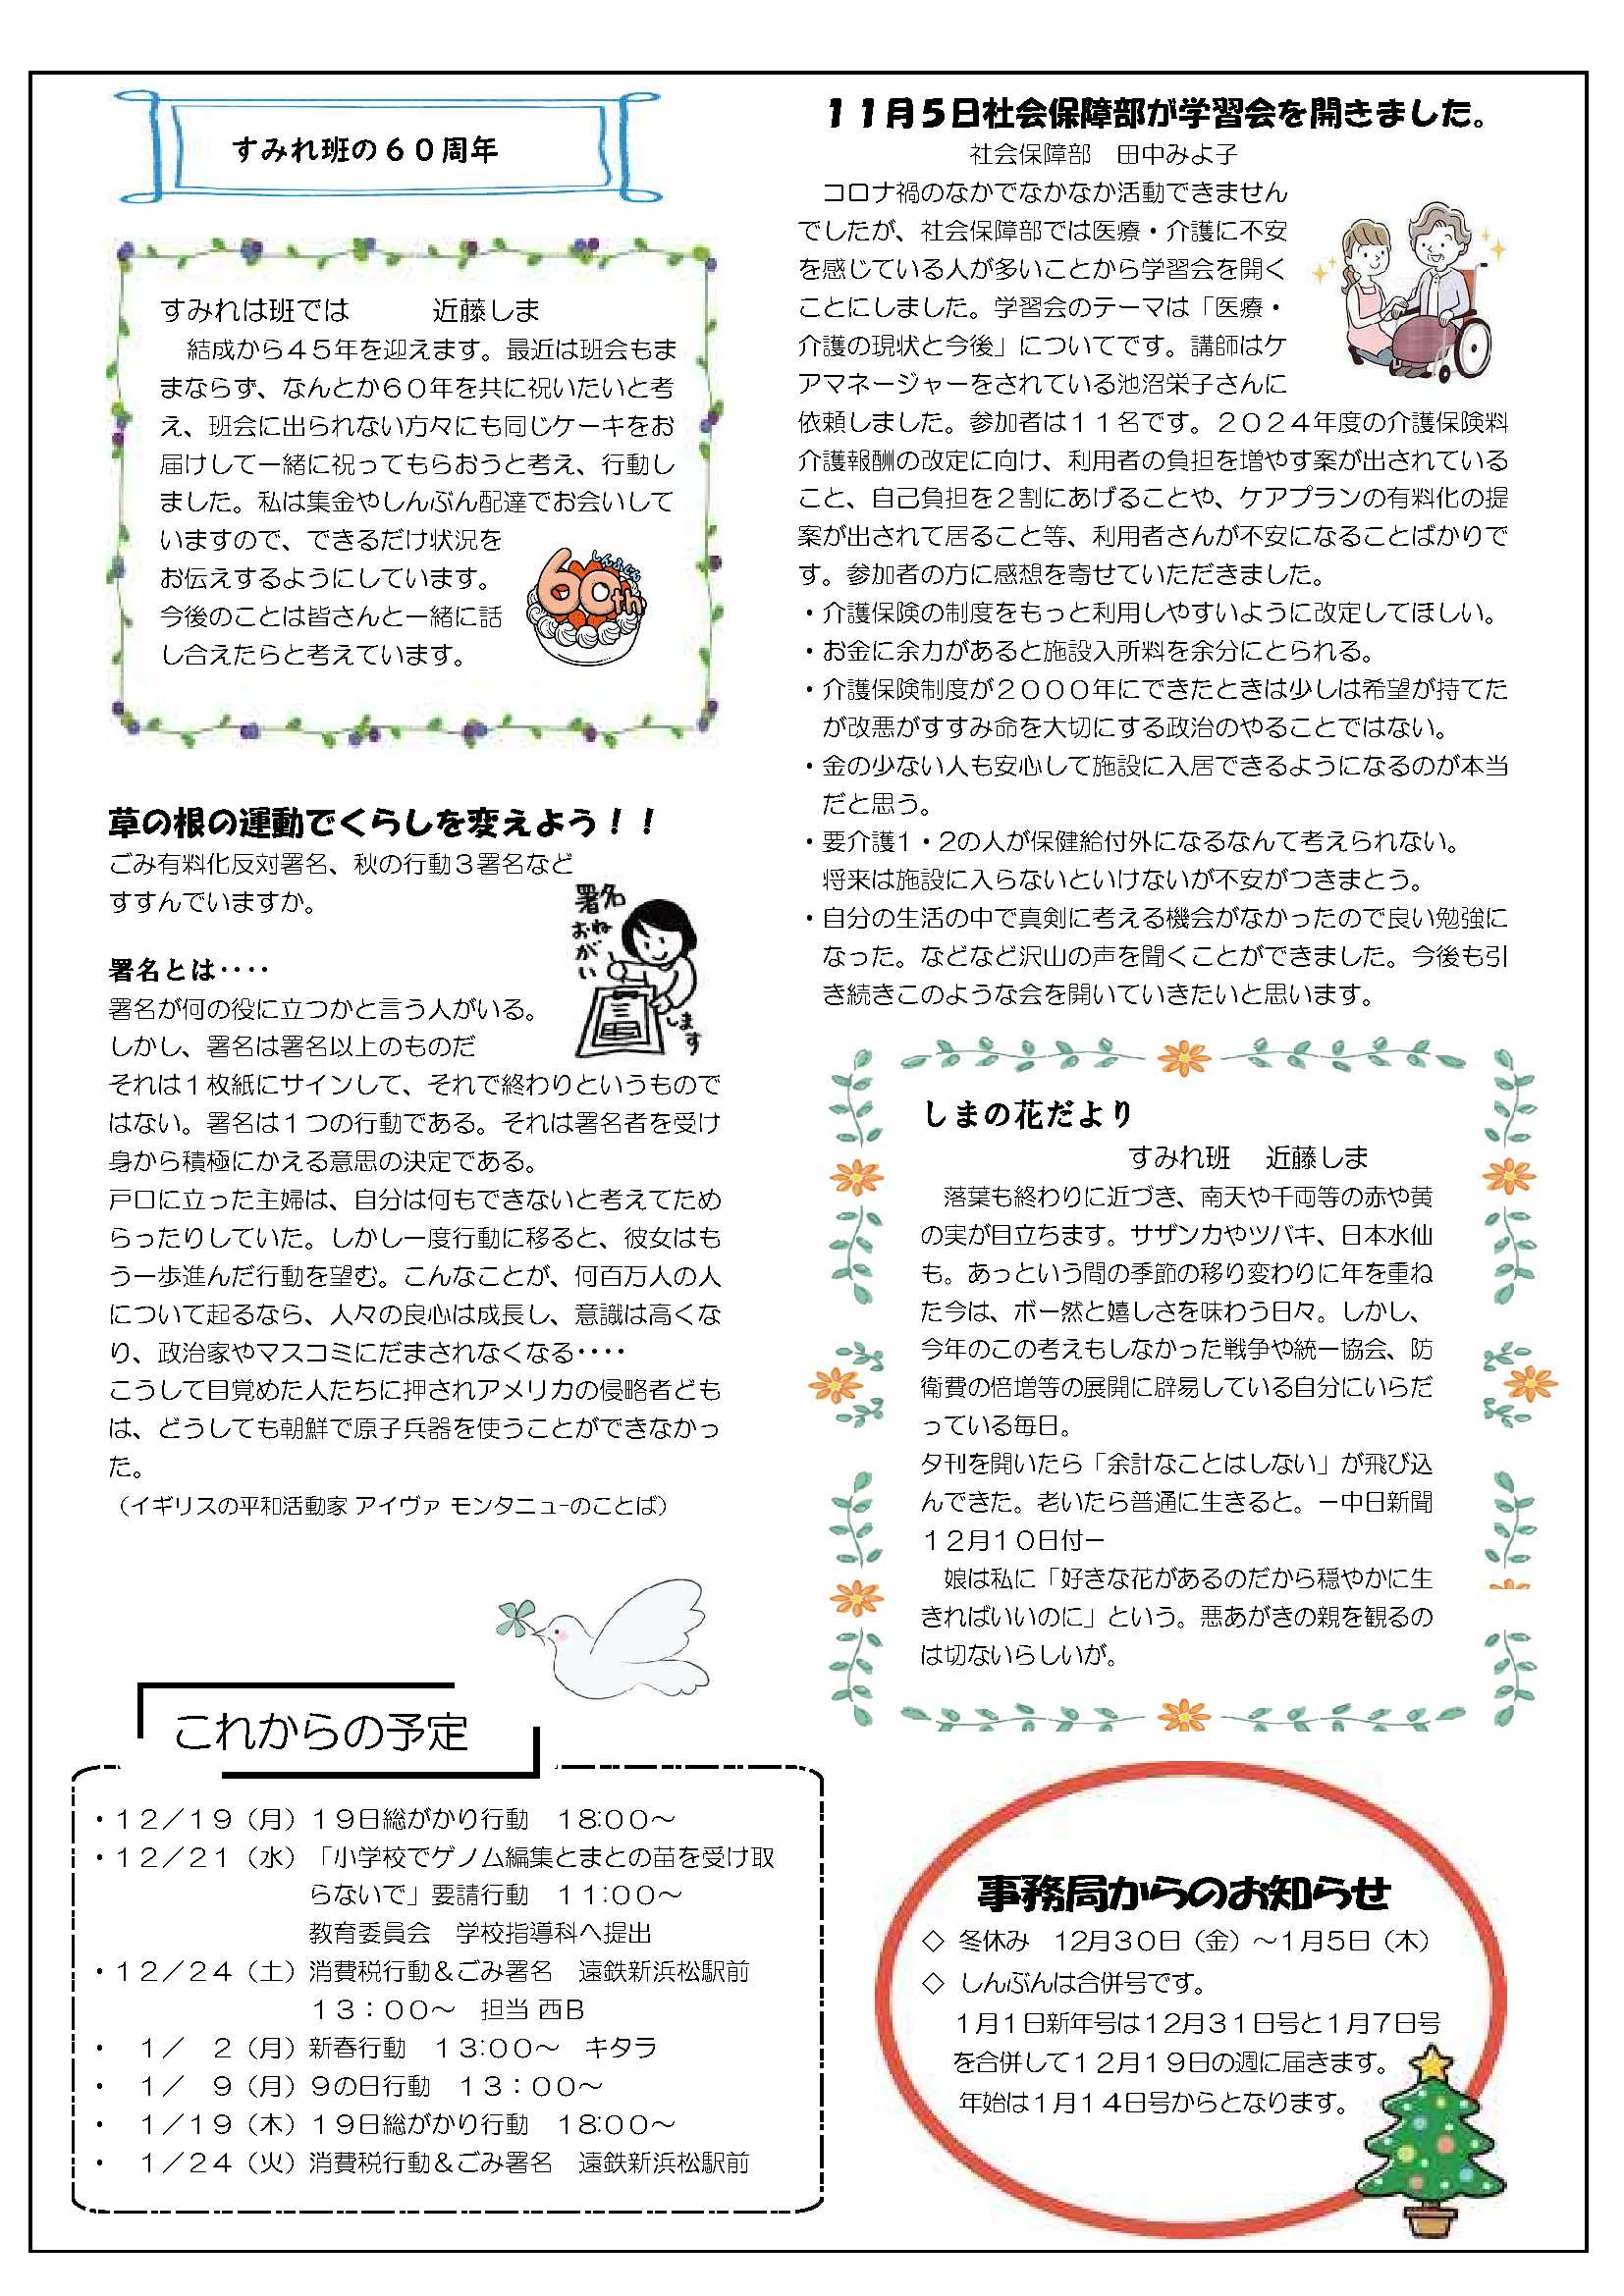 すみれ班の６０周年
すみれは班では　　　近藤しま
結成から４５年を迎えます。最近は班会もま
まならず、なんとか６０年を共に祝いたいと考
え、班会に出られない方々にも同じケーキをお
届けして一緒に祝ってもらおうと考え、行動し
ました。私は集金やしんぶん配達でお会いして
いますので、できるだけ状況を
お伝えするようにしています。
今後のことは皆さんと一緒に話
し合えたらと考えています。
しんふじん
60th
草の根の運動でくらしを変えよう！！
ごみ有料化反対署名、秋の行動３署名など
すすんでいますか。
署名
おねがい
します
署名とは････
署名が何の役に立つかと言う人がいる。
しかし、署名は署名以上のものだ
それは１枚紙にサインして、それで終わりというもので
はない。署名は１つの行動である。それは署名者を受け
身から積極にかえる意思の決定である。
戸口に立った主婦は、自分は何もできないと考えてため
らったりしていた。しかし一度行動に移ると、彼女はも
う一歩進んだ行動を望む。こんなことが、何百万人の人
について起るなら、人々の良心は成長し、意識は高くな
り、政治家やマスコミにだまされなくなる････
こうして目覚めた人たちに押されアメリカの侵略者ども
は、どうしても朝鮮で原子兵器を使うことができなかっ
た。
（イギリスの平和活動家 アイヴァ モンタニューのことば）
これからの予定
・１２／１９（月）１９日総がかり行動　１８:００～
・１２／２１（水）「小学校でゲノム編集とまとの苗を受け取
らないで」要請行動　１１:００～
教育委員会　学校指導科へ提出
・１２／２４（土）消費税行動＆ごみ署名　遠鉄新浜松駅前
１３：００～　担当 西Ｂ
・　１／　２（月）新春行動　１３:００～　キタラ
・　１／　９（月）９の日行動　１３：００～
・　１／１９（木）１９日総がかり行動　１８:００～
・　１／２４（火）消費税行動＆ごみ署名　遠鉄新浜松駅前
１１月５日社会保障部が学習会を開きました。
社会保障部　田中みよ子
コロナ禍のなかでなかなか活動できません
でしたが、社会保障部では医療・介護に不安
を感じている人が多いことから学習会を開く
ことにしました。学習会のテーマは「医療・
介護の現状と今後」についてです。講師はケ
アマネージャーをされている池沼栄子さんに
依頼しました。参加者は１１名です。２０２４年度の介護保険料
介護報酬の改定に向け、利用者の負担を増やす案が出されている
こと、自己負担を２割にあげることや、ケアプランの有料化の提
案が出されて居ること等、利用者さんが不安になることばかりで
す。参加者の方に感想を寄せていただきました。
・介護保険の制度をもっと利用しやすいように改定してほしい。
・お金に余力があると施設入所料を余分にとられる。
・介護保険制度が２０００年にできたときは少しは希望が持てた
が改悪がすすみ命を大切にする政治のやることではない。
・金の少ない人も安心して施設に入居できるようになるのが本当
だと思う。
・要介護１・２の人が保健給付外になるなんて考えられない。
将来は施設に入らないといけないが不安がつきまとう。
・自分の生活の中で真剣に考える機会がなかったので良い勉強に
なった。などなど沢山の声を聞くことができました。今後も引
き続きこのような会を開いていきたいと思います。
しまの花だより
すみれ班　近藤しま
落葉も終わりに近づき、南天や千両等の赤や黄
の実が目立ちます。サザンカやツバキ、日本水仙
も。あっという間の季節の移り変わりに年を重ね
た今は、ボー然と嬉しさを味わう日々。しかし、
今年のこの考えもしなかった戦争や統一協会、防
衛費の倍増等の展開に辟易している自分にいらだ
っている毎日。
夕刊を開いたら「余計なことはしない」が飛び込
んできた。老いたら普通に生きると。－中日新聞
１２月１０日付－
娘は私に「好きな花があるのだから穏やかに生
きればいいのに」という。悪あがきの親を観るの
は切ないらしいが。
事務局からのお知らせ
◇ 冬休み　１２月３０日（金）～１月５日（木）
◇ しんぶんは合併号です。
１月１日新年号は１２月３１日号と１月７日号
を合併して１２月１９日の週に届きます。
年始は１月１４日号からとなります。